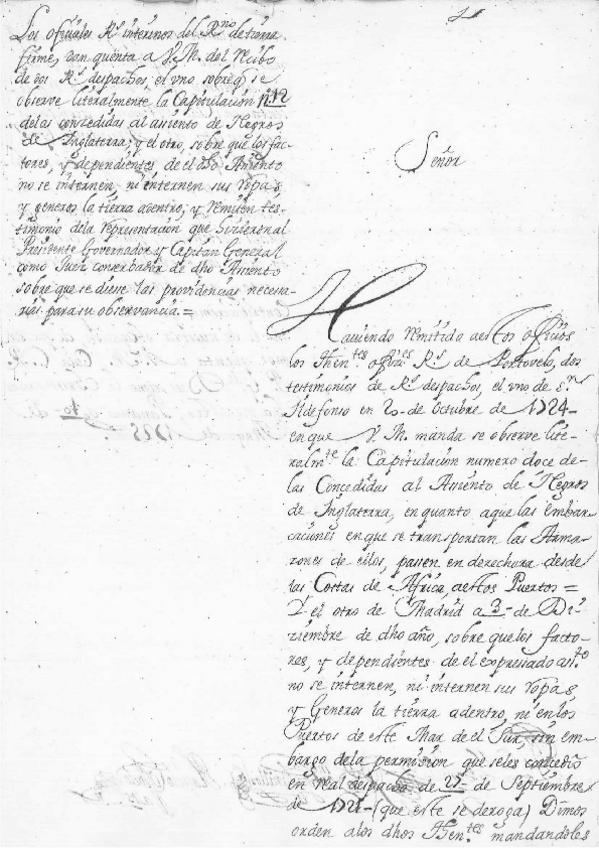 Los ofiçiales R.s interinos del R.no de tierra
firme, dan quenta a V. M. del reçibo
de dos R.s despachos, el vno sobreq se
observe literalmente la Capitulaçion n.12
delas conçedidas al assiento de Negros
de Inglaterra; y el otro, sobre que los fac-
tores, y dependientes de el dho Assiento
no se internen, ni internen sus ropas,
y generos la tierra adentro; y remiten tes-
timonio dela representaçion que hiçieron al
Presidente Governador y Capitan General
como Juez conserbador de dho Assiento
sobre que se diese las providençias neçesa-
rias para su observançia.=
Señor
Haviendo remitido aestos ofiçios
los Then.tes ofiçiales R.s de Portovelo, dos
testimonios de R.s despachos, el vno de S.n
Ildefonso en 20 de Octubre de 1724
enque V. M. manda se observe lite-
ralm.te la Capitulaçion numero doçe de-
las Conçedidas al Assiento de Negros
de Inglaterra, en quanto aque las embar-
caçiones en que se transportan las Arma-
zones de ellos, passen en derechura desde
las Costas de Africa, aestos Puertos=
Y el otro de Madrid a 3 de Di-
ziembre de dho año, sobre quelos facto-
res, y dependientes de el expresado ass.to
no se internen, ni internen sus ropas,
y Generos la tierra adentro, ni enlos
Puertos de este Mar de el Sur, sin em-
bargo dela permission que seles conçedio
en real despacho de de Septiembre
de (que este se deroga) Dimos
orden alos dhos Then.tes mandandoles